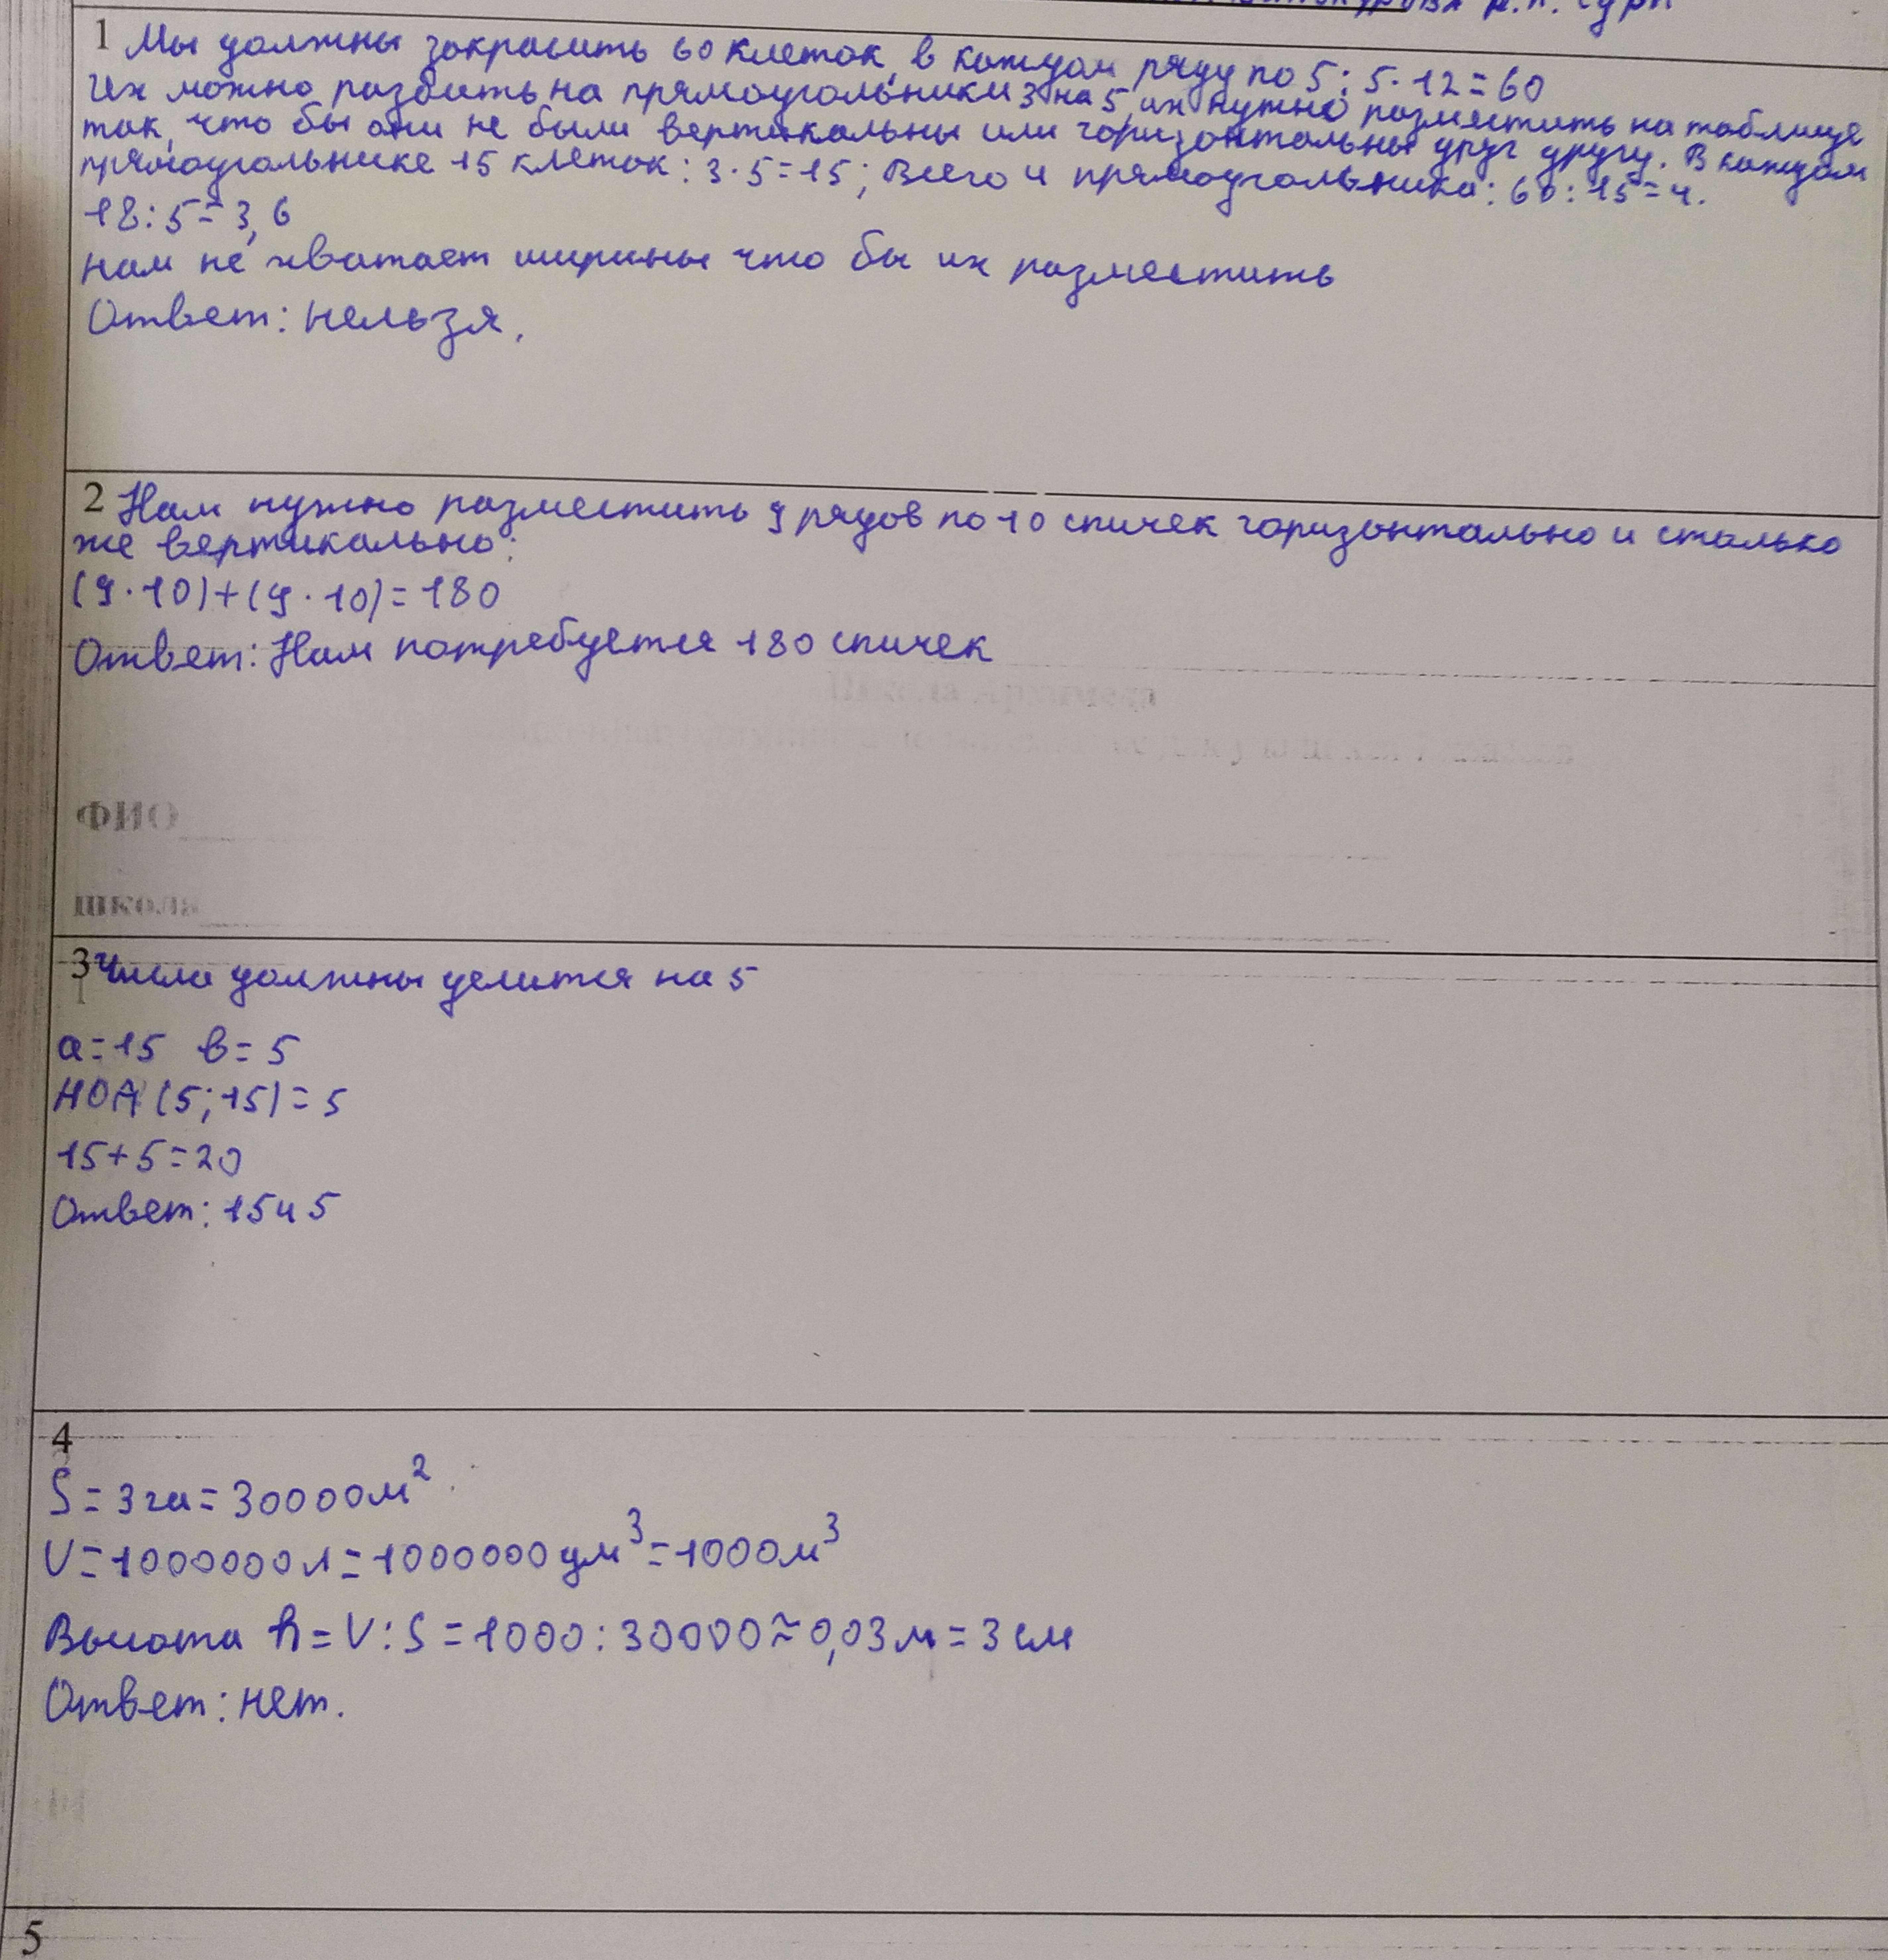 1 Мы должны закрасить 60 клеток, в каждом ряду по 5: 5·12=60
Их можно разбить на прямоугольники 3 на 5, их нужно разместить на таблице
так, что бы они не были вертикальны или горизонтальны друг другу. В каждом
прямоугольнике 15 клеток: 3·5=15; Всего 4 прямоугольника: 60:15=4.
18:5=3,6
Нам не хватает ширины что бы их разместить
Ответ: нельзя.
2 Нам нужно разместить 9 рядов по 10 спичек горизонтально и столько
же вертикально:
(9·10)+(9·10)=180
Ответ: Нам потребуется 180 спичек
Школа
ФИО
школа
3 Числа должны делится на 5
а=15 в=5
НОД (5;15)=5
15+5=20
Ответ: 15 и 5
4
S=3га=30000м²
V=1000000л=1000000дм³=1000м³
Высота h=V:S=1000:30000≈0,03м=3см
Ответ: нет.
5